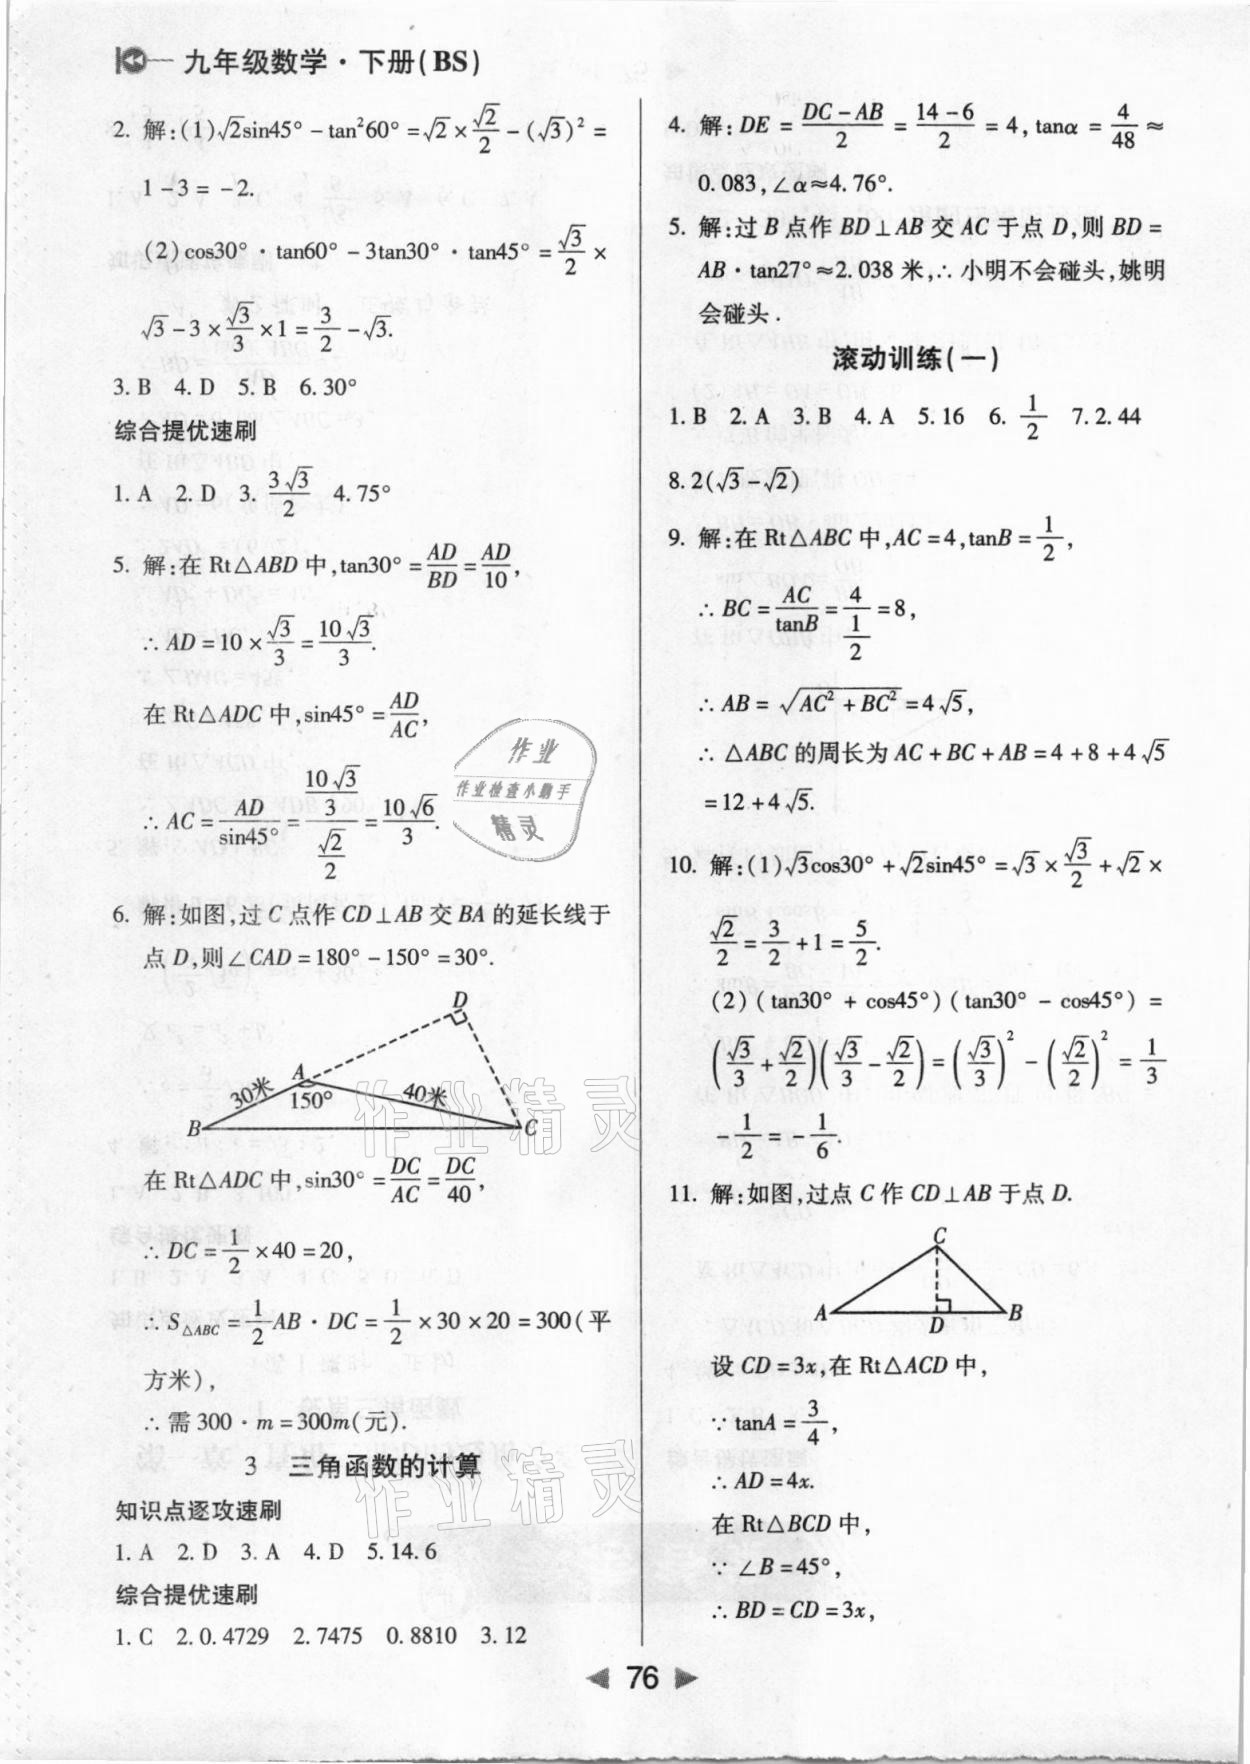 九年级数学·下册(BS)
2. 解:(1)√2sin45°-tan²60°=√2×√2/2-(√3)²=
1-3=-2.
(2)cos30°·tan60°-3tan30°·tan45°=√3/2×
√3-3×√3/3×1=3/2-√3.
3. B 4. D 5. B 6. 30°
综合提优速刷
1. A 2. D 3. 3√3/2 4. 75°
5. 解:在Rt△ABD中,tan30°=AD/BD=AD/10,
∴AD=10×√3/3=10√3/3.
在Rt△ADC中,sin45°=AD/AC,
∴AC=AD/sin45°=(10√3/3)/(√2/2)=10√6/3.
6. 解:如图,过C点作CD⊥AB交BA的延长线于
点D,则∠CAD=180°-150°=30°.
D
A
30米
150°
40米
B
C
在Rt△ADC中,sin30°=DC/AC=DC/40,
∴DC=1/2×40=20,
∴S△ABC=1/2AB·DC=1/2×30×20=300(平
方米),
∴需300·m=300m(元).
3 三角函数的计算
知识点逐攻速刷
1. A 2. D 3. A 4. D 5. 14.6
综合提优速刷
1. C 2. 0.4729 2.7475 0.8810 3. 12
4. 解:DE=(DC-AB)/2=(14-6)/2=4,tanα=4/48≈
0.083,∠α≈4.76°.
5. 解:过B点作BD⊥AB交AC于点D,则BD=
AB·tan27°≈2.038米,∴小明不会碰头,姚明
会碰头.
滚动训练(一)
1. B 2. A 3. B 4. A 5. 16 6. 1/2 7. 2.44
8. 2(√3-√2)
9. 解:在Rt△ABC中,AC=4,tanB=1/2,
∴BC=AC/tanB=4/(1/2)=8,
∴AB=√(AC²+BC²)=4√5,
∴△ABC的周长为AC+BC+AB=4+8+4√5
=12+4√5.
10. 解:(1)√3cos30°+√2sin45°=√3×√3/2+√2×
√2/2=3/2+1=5/2.
(2)(tan30°+cos45°)(tan30°-cos45°)=
(√3/3+√2/2)(√3/3-√2/2)=(√3/3)²-(√2/2)²=1/3
-1/2=-1/6.
11. 解:如图,过点C作CD⊥AB于点D.
C
A
D
B
设CD=3x,在Rt△ACD中,
∵tanA=3/4,
∴AD=4x.
在Rt△BCD中,
∵∠B=45°,
∴BD=CD=3x,
76
作业
作业检查小助手
精灵
作业精灵
作业精灵